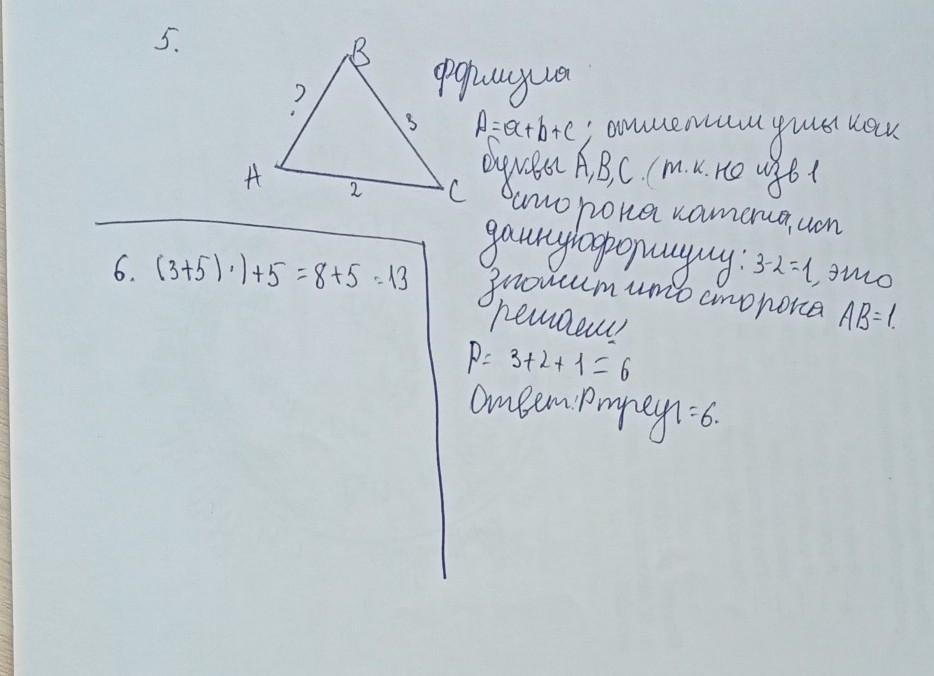 5.
B
?
3
A
2
C
формула
P=a+b+c; отметим углы как
буквы A,B,C. (т.к. не изв 1
сторона катета, исп
данную формулу: 3-2=1, это
значит что сторона AB=1.
решаем:
P= 3+2+1=6
Ответ: Pтреуг=6.
6. (3+5)·1+5=8+5=13